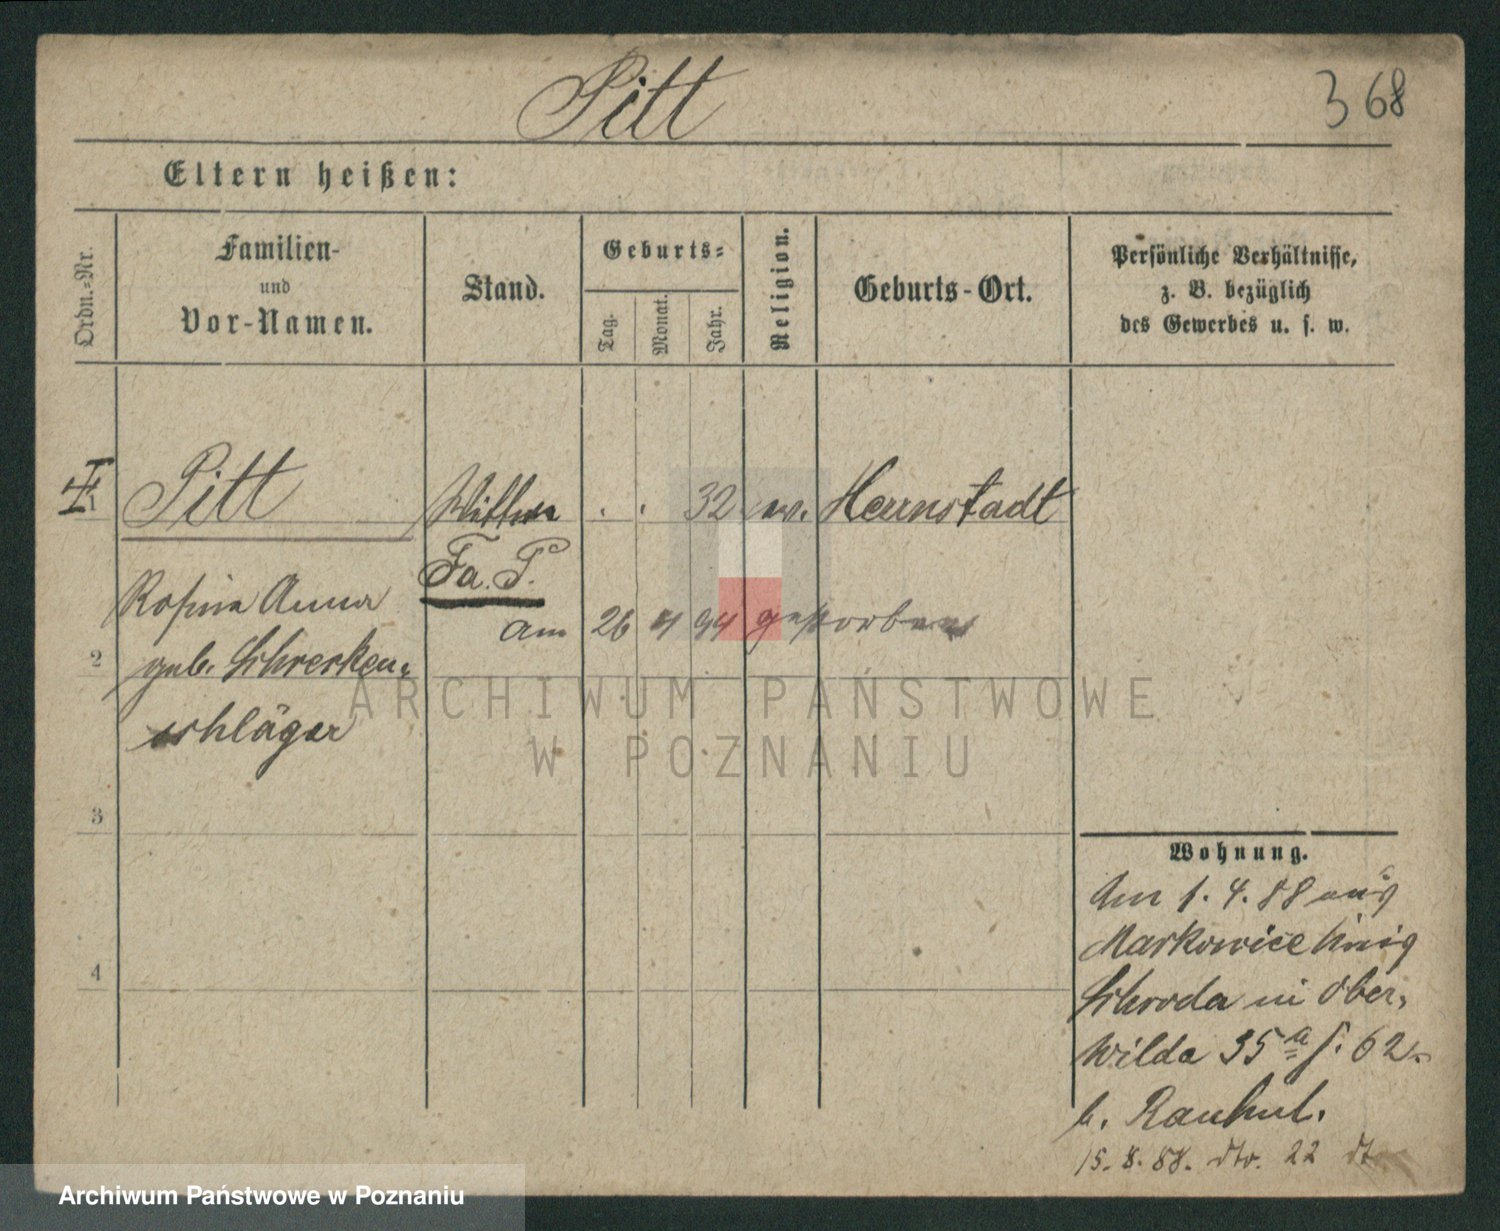 Pitt
368
Eltern heißen:
Ordn.-Nr.
Familien-
und
Vor-Namen.
Stand.
Geburts-
Tag.
Monat.
Jahr.
Religion.
Geburts-Ort.
Persönliche Verhältnisse,
z. B. bezüglich
des Gewerbes u. s. w.
1 Pitt Wittwe . . 32 ev. Herrnstadt
Fa. P.
Rosina Anna
am 26 4 94 gestorben
2 geb. Schrecken-
schläger
ARCHIWUM PAŃSTWOWE
W POZNANIU
3
4
Wohnung.
Am 1. 4. 88 aus
Markowice
Schroda in Ober-
Wilda 35 a f. 62
b. Rauhut.
15. 8. 88. dto. 22
Archiwum Państwowe w Poznaniu